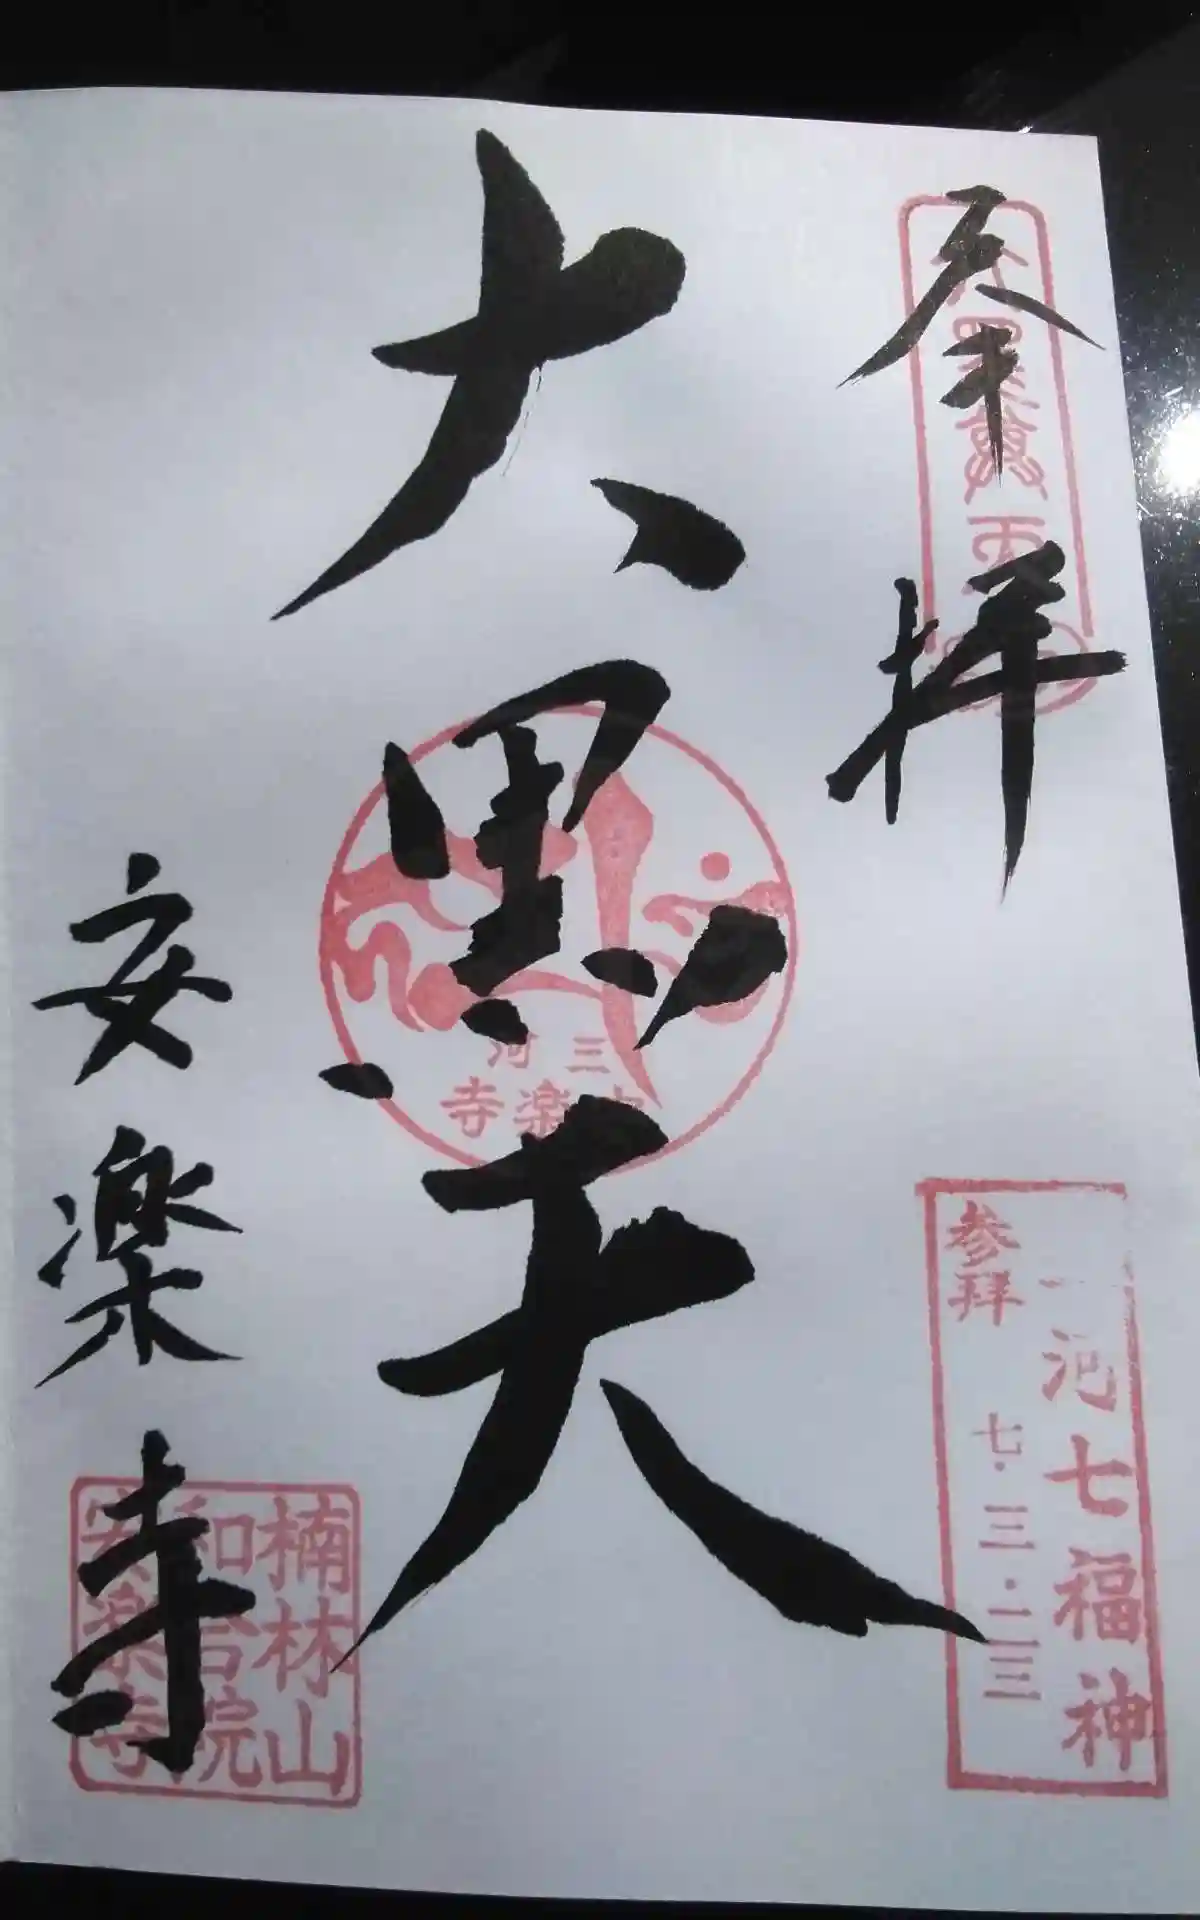 奉拝
河七福神
参拝
七・三・二三
大黒天
三河
楽寺
安楽寺
楠林山
和合院
安楽寺